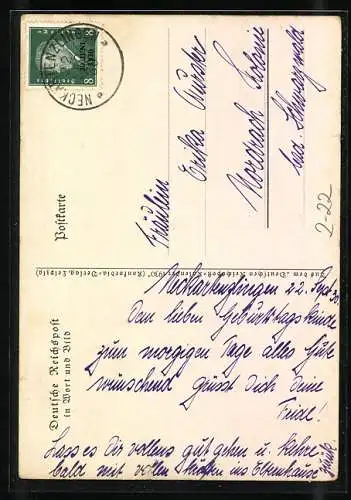 Deutsche Reichspost
in Wort und Bild
Postkarte
Aus dem „Deutschen Reichspost-Kalender 1930“ (Konkordia-Verlag, Leipzig)
Deutsches Reich
8 8
Fräulein
Erika
Nordrach
bad. Schwarzwald
2-22
Neckartenzlingen 22. Sept. 30.
Dem lieben Geburtstagskinde
zum morgigen Tage alles Gute
wünschend grüsst Dich deine
Friedel!
Lass es Dir vollens gut gehn u. kehre
bald mit vollen ins Elternhause
zurück.